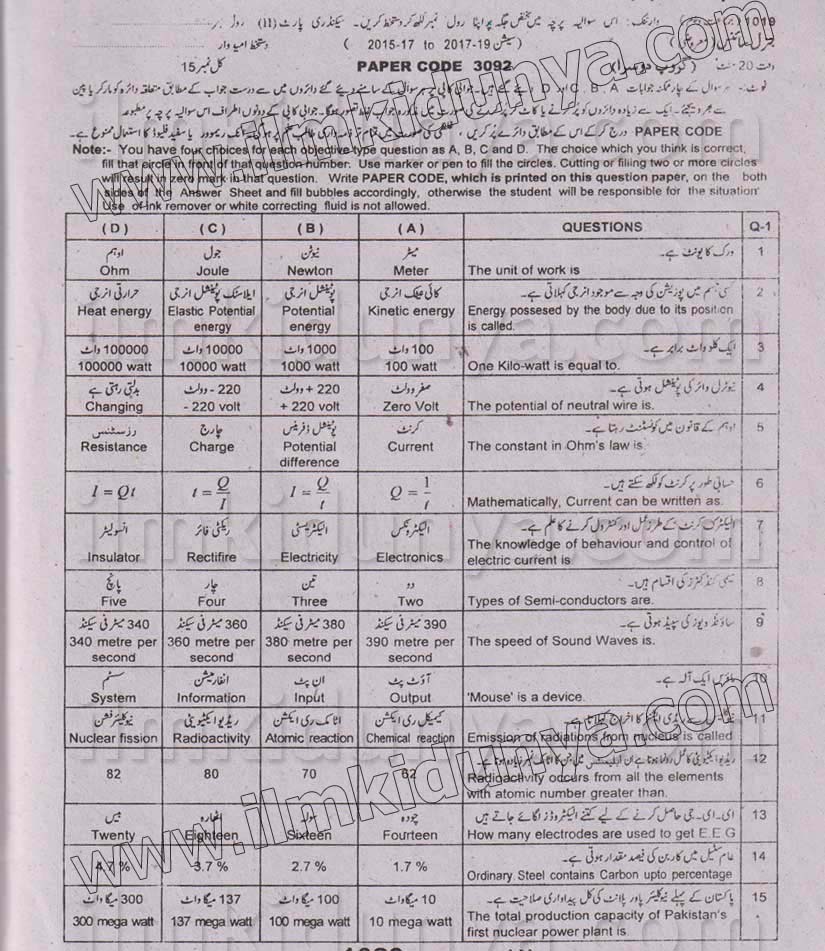 وارننگ: اس سوالیہ پرچہ میں مختص جگہ پر اپنا رول نمبر لکھ کر دستخط کریں۔ سیکنڈری پارٹ (II) رول نمبر
(سیشن 19-2017 to 17-2015) دستخط امیدوار
وقت 20 منٹ (گروپ دوسرا) PAPER CODE 3092 کل نمبر 15
نوٹ:- ہر سوال کے چار ممکنہ جوابات A، B، C اور D دیے گئے ہیں۔ جوابی کاپی پر ہر سوال کے سامنے دیئے گئے دائروں میں سے درست جواب کے مطابق متعلقہ دائرہ کو مارکر یا پین
سے بھر دیجئے۔ ایک سے زیادہ دائروں کو پُر کرنے یا کاٹ کر پُر کرنے کی صورت میں مذکورہ جواب غلط تصور ہوگا۔ جوابی کاپی کے دونوں اطراف اس سوالیہ پرچہ پر مطبوعہ
PAPER CODE درج کر کے اس کے مطابق دائرے پُر کریں، انک ریموور یا سفید فلیوڈ کا استعمال ممنوع ہے۔
Note:- You have four choices for each objective type question as A, B, C and D. The choice which you think is correct,
fill that circle in front of that question number. Use marker or pen to fill the circles. Cutting or filling two or more circles
will result in zero mark in that question. Write PAPER CODE, which is printed on this question paper, on the both
sides of the Answer Sheet and fill bubbles accordingly, otherwise the student will be responsible for the situation
Use of ink remover or white correcting fluid is not allowed.
(D) (C) (B) (A) QUESTIONS Q-1
اوہم جول نیوٹن میٹر ورک کا یونٹ ہے۔ 1
Ohm Joule Newton Meter The unit of work is
حرارتی انرجی ایلاسٹک پوٹینشل انرجی پوٹینشل انرجی کائی نیٹک انرجی کسی جسم میں پوزیشن کی وجہ سے موجود انرجی کہلاتی ہے۔ 2
Heat energy Elastic Potential energy Potential energy Kinetic energy Energy possesed by the body due to its position
is called.
100000 واٹ 10000 واٹ 1000 واٹ 100 واٹ ایک کلو واٹ برابر ہے۔ 3
100000 watt 10000 watt 1000 watt 100 watt One Kilo-watt is equal to.
بدلتی رہتی ہے 220 - وولٹ 220 + وولٹ صفر وولٹ نیوٹرل وائر کی پوٹینشل ہوتی ہے۔ 4
Changing - 220 volt + 220 volt Zero Volt The potential of neutral wire is.
رزسٹنس چارج پوٹینشل ڈفرینس کرنٹ اوہم کے قانون میں کونسٹنٹ رہتا ہے۔ 5
Resistance Charge Potential difference Current The constant in Ohm's law is.
حسابی طور پر کرنٹ کو لکھ سکتے ہیں۔ 6
I = Qt t = Q/I I = Q/t Q = 1/t Mathematically, Current can be written as.
انسولیٹر ریکٹی فائر الیکٹریسٹی الیکٹرونکس الیکٹرک کرنٹ کے طرز عمل اور کنٹرول کرنے کا علم ہے۔ 7
Insulator Rectifire Electricity Electronics The knowledge of behaviour and control of
electric current is
پانچ چار تین دو سیمی کنڈکٹرز کی اقسام ہیں۔ 8
Five Four Three Two Types of Semi-conductors are.
340 میٹر فی سیکنڈ 360 میٹر فی سیکنڈ 380 میٹر فی سیکنڈ 390 میٹر فی سیکنڈ ساؤنڈ ویوز کی سپیڈ ہوتی ہے۔ 9
340 metre per second 360 metre per second 380 metre per second 390 metre per second The speed of Sound Waves is.
سسٹم انفارمیشن ان پٹ آؤٹ پٹ ماؤس ایک آلہ ہے۔ 10
System Information Input Output 'Mouse' is a device.
نیوکلیئر فشن ریڈیو ایکٹیویٹی اٹامک ری ایکشن کیمیکل ری ایکشن 11
Nuclear fission Radioactivity Atomic reaction Chemical reaction Emission of radiations from nucleus is called
12
82 80 70 62 Radigactivity occurs from all the elements
with atomic number greater than.
بیس اٹھارہ سولہ چودہ ای۔ای۔جی حاصل کرنے کے لیے کتنے الیکٹروڈز لگائے جاتے ہیں 13
Twenty Eighteen Sixteen Fourteen How many electrodes are used to get E.E.G
عام سٹیل میں کاربن کی فیصد مقدار ہوتی ہے۔ 14
4.7 % 3.7 % 2.7 % 1.7 % Ordinary Steel contains Carbon upto percentage
300 میگا واٹ 137 میگا واٹ 100 میگا واٹ 10 میگا واٹ پاکستان کے پہلے نیوکلیئر پاور پلانٹ کی کل پیداواری صلاحیت ہے۔ 15
300 mega watt 137 mega watt 100 mega watt 10 mega watt The total production capacity of Pakistan's
first nuclear power plant is.
www.ilmkidunya.com
www.ilmkidunya.com
ilmkidunya.com